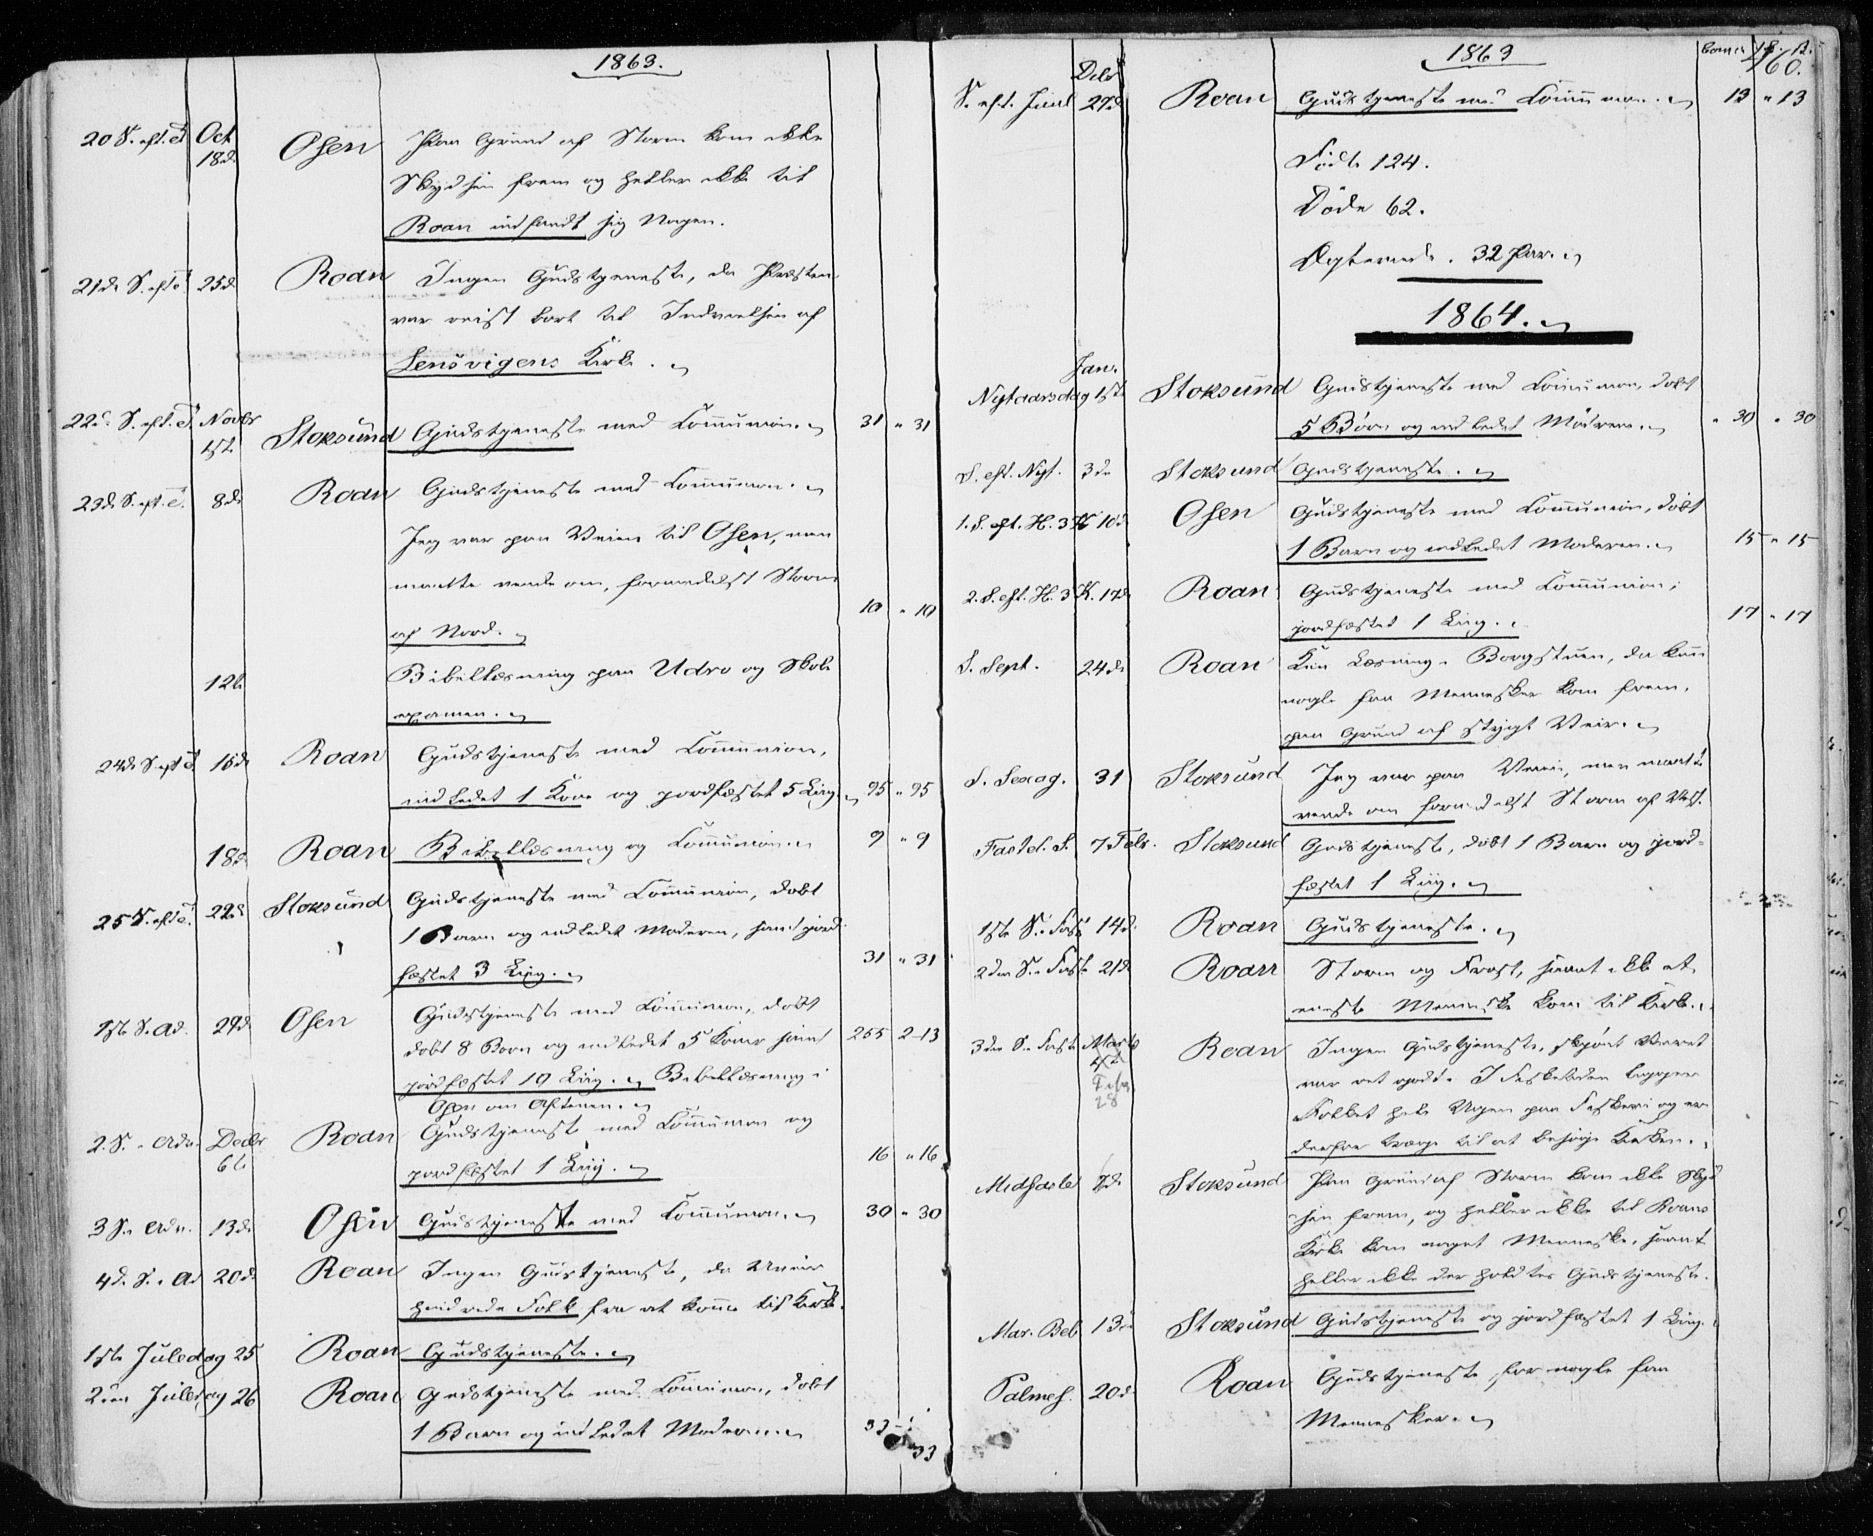 1863.
20 S. eft. T. Oct 18de Osen Paa Grund af Storm kom ikke
Skydsen frem og heller ikke til
Roan indfandt sig Nogen.
21de S. eft. T. 25de Roan Ingen Gudstjeneste, da Præsten
var reist bort til Indvielsen af
Lensvigens Kirke.
22de S. eft. T. Novbr 1ste Stoksund Gudstjeneste med Communion. 31 " 31
23de S. eft. T. 8de Roan Gudstjeneste med Communion.
Jeg var paa Veien til Osen, men
maatte vende om, formedelst Storm
af Nord. 10 " 10
12te Bibellæsning paa Udro og Skole
examen.
24de S. eft. T. 15de Roan Gudstjeneste med Communion,
indledet 1 Kone og jordfæstet 5 Liig. 95 " 95
18de Roan Bibellæsning og Communion. 9 " 9
25 S. eft. T. 22de Stoksund Gudstjeneste med Communion, døbt
1 Barn og indledet Moderen, samt jord-
fæstet 3 Liig. 31 " 31
1ste S. Ad. 29de Osen Gudstjeneste med Communion, døbt
døbt 8 Børn og indledet 5 Koner samt 255 2-13
jordfæstet 10 Liig. Bibellæsning i
Osen om Aftenen.
2. S. i Adv. Decbr 6te Roan Gudstjeneste med Communion og
jordfæstet 1 Liig. 16 " 16
3 S. i Adv. 13de Osen Gudstjeneste med Communion. 30 " 30
4de S. i Ad 20de Roan Ingen Gudstjeneste, da Veiret
hindrede Folk fra at komme til Kirke.
1ste Juledag 25 Roan Gudstjeneste.
2den Juledag 26 Roan Gudstjeneste med Communion, døbt
1 Barn og indledet Moderen. 33 " 33
1863
160.
S. eft. Juul Decbr 27de Roan Gudstjeneste med Communion. 13 " 13
Fødte 124.
Døde 62.
Ægteviede. 32 Par.
1864.
Nytaarsdag Jan. 1ste Stoksund Gudstjeneste med Communion, døbt
5 Børn og indledet Mødrene. " 30 " 30
S. eft. Nyt. 3de Stoksund Gudstjeneste.
1. S. eft. H. 3 K 10de Osen Gudstjeneste med Communion, døbt
1 Barn og indledet Moderen. 15 " 15
2. S. eft. H. 3 K. 17de Roan Gudstjeneste med Communion;
jordfæstet 1 Liig. 17 " 17
S. Sept. 24de Roan Kun Læsning i Borgstuen, da kun
nogle faa Mennesker kom frem,
paa Grund af stygt Veir.
S. Sexag. 31 Stoksund Jeg var paa Veien, men maatte
vende om formedelst Storm af Vest.
Fastel. S. 7 Febr. Stoksund Gudstjeneste, døbt 1 Barn og jord-
fæstet 1 Liig.
1ste S. i Fast 14de Roan Gudstjeneste.
2den S. i Faste 21de Roan Storm og Frost, saa at ikke et
eneste Menneske kom til Kirke.
3die S. i Faste Marts Febr 28 Roan Ingen Gudstjeneste, skjønt Veiret
var ret godt. I Fisketiden ligger
Folket hele Ugen paa Fiskeri og er
derfor træge til at besøge Kirken.
Midfaste 6de Stoksund Paa Grund af Storm kom ikke Skyd
sen frem, og heller ikke til Roans
Kirke kom noget Menneske, saa at
heller ikke der holdtes Gudstjeneste.
Mar. Beb 13de Stoksund Gudstjeneste og jordfæstet 1 Liig.
Palmes. 20de Roan Gudstjeneste for nogle faa
Mennesker.